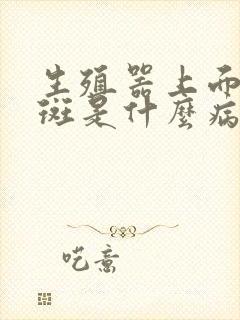 生殖器上面
斑是什麼病
呓意